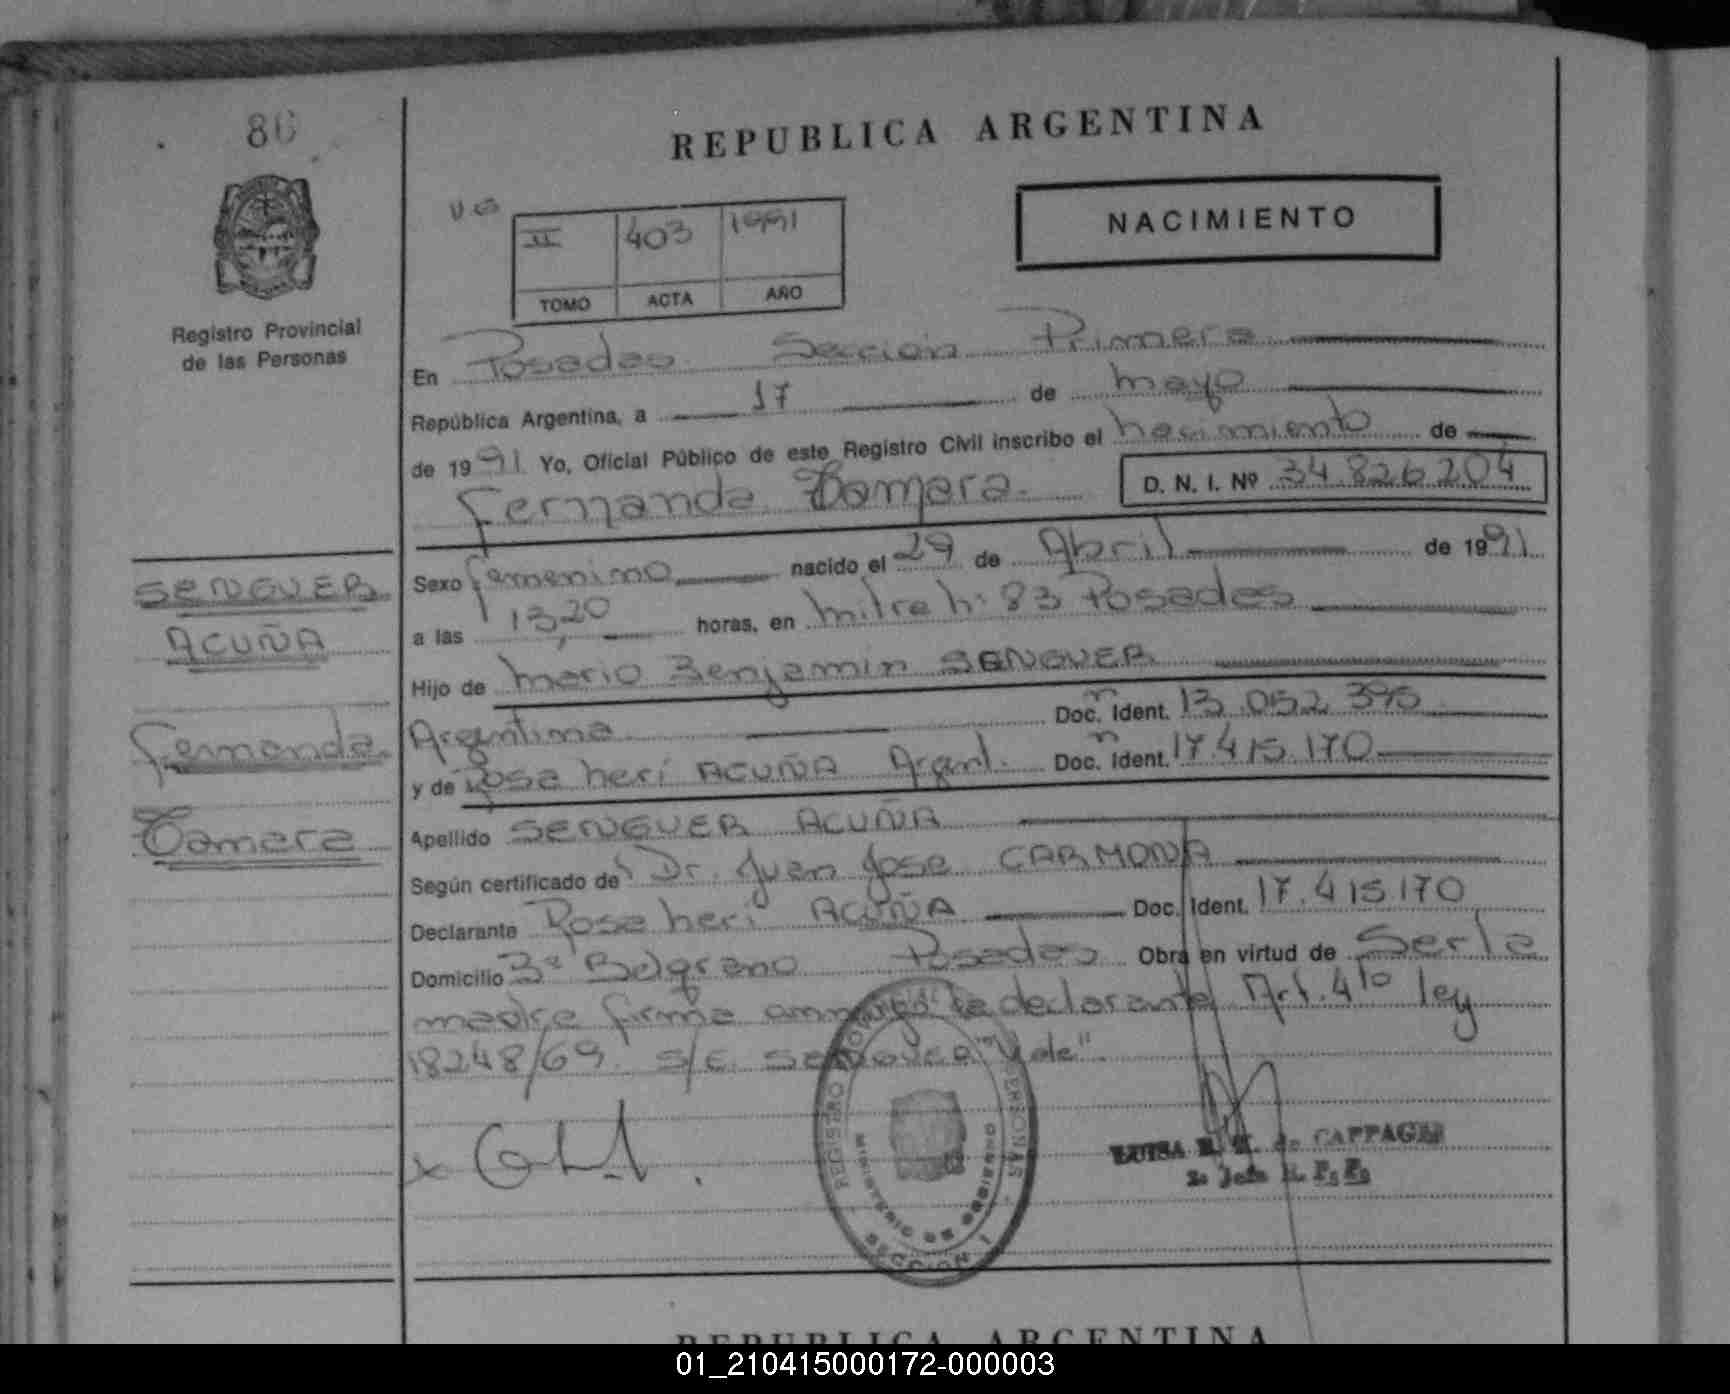 80
REPUBLICA ARGENTINA
Registro Provincial
de las Personas
II 403 1991
TOMO ACTA AÑO
NACIMIENTO
En Posadas Sección Primera
República Argentina, a 17 de mayo
de 1991 Yo, Oficial Público de este Registro Civil inscribo el nacimiento de
Fernanda Tamara. D. N. I. Nº 34.826.204
SENGUER
ACUÑA
Fernanda
Tamara
Sexo femenino nacido el 29 de Abril de 1991
a las 13,20 horas, en Mitre Nº 83 Posadas
Hijo de Mario Benjamin SENGUER
Argentina Doc. Ident. 13.052.395
y de Rosa Neri ACUÑA Argent. Doc. Ident. 17.415.170
Apellido SENGUER ACUÑA
Según certificado de Dr. Juan Jose CARMONA
Declarante Rosa Neri ACUÑA Doc. Ident. 17.415.170
Domicilio Bº Belgrano Posadas Obra en virtud de Ser la
madre firma la declarante Art. 4to ley
18248/69. S/E. SENGUER "y de".
REGISTRO PERSONAS
MINISTERIO DE GOBIERNO
SECCION I
LUISA de CAPPAGLI
REPUBLICA ARGENTINA
01_210415000172-000003